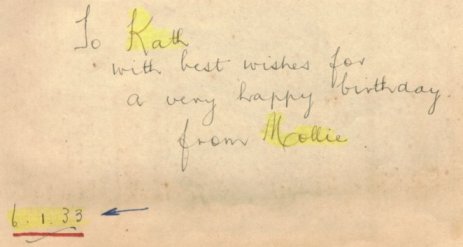 To Kath
with best wishes for
a very happy birthday.
from Mollie.
6.1.33